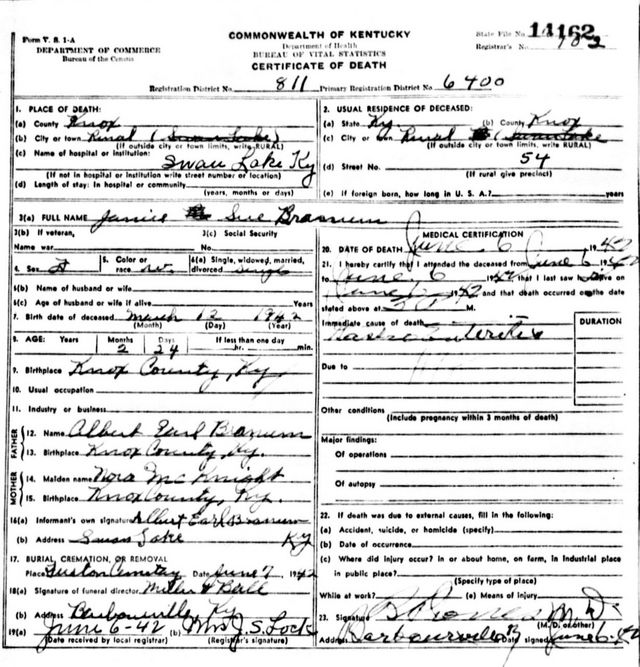 Form V. S. 1-A
DEPARTMENT OF COMMERCE
Bureau of the Census
COMMONWEALTH OF KENTUCKY
Department of Health
BUREAU OF VITAL STATISTICS
CERTIFICATE OF DEATH
State File No. 14162
Registrar's No.
Registration District No. 811 Primary Registration District No. 6400
1. PLACE OF DEATH:
(a) County Knox
(b) City or town Rural (Swan Lake)
(If outside city or town limits, write RURAL)
(c) Name of hospital or institution: Swan Lake Ky
(If not in hospital or institution write street number or location)
(d) Length of stay: In hospital or community
(years, months or days)
2. USUAL RESIDENCE OF DECEASED:
(a) State Ky. (b) County Knox
(c) City or town Rural (Swan Lake
(If outside city or town limits, write RURAL)
(d) Street No. 54
(If rural give precinct)
(e) If foreign born, how long in U. S. A.? years
3(a) FULL NAME Janice Sue Branum
3(b) If veteran, 3(c) Social Security
Name war No.
4. Sex F 5. Color or race w. 6(a) Single, widowed, married, divorced single
6(b) Name of husband or wife
6(c) Age of husband or wife if alive Years
7. Birth date of deceased March 12 1942
(Month) (Day) (Year)
8. AGE: Years Months Days If less than one day
2 24 hr. min.
9. Birthplace Knox County, Ky.
10. Usual occupation
11. Industry or business
FATHER
12. Name Albert Earl Branum
13. Birthplace Knox County, Ky.
MOTHER
14. Maiden name Nora McKnight
15. Birthplace Knox County, Ky.
16(a) Informant's own signature Albert Earl Branum
(b) Address Swan Lake Ky
17. BURIAL, CREMATION, OR REMOVAL
Place Cemetery Date June 7, 1942
18(a) Signature of funeral director Miller & Ball
(b) Address Barbourville, Ky
19(a) June 6-42 (b) Mrs J. S. Lock
(Date received by local registrar) (Registrar's signature)
MEDICAL CERTIFICATION
20. DATE OF DEATH June 6 1942
21. I hereby certify that I attended the deceased from June 6 1942
to June 6 1942 that I last saw h alive on
June 1942 and that death occurred on the date
stated above at M.
Immediate cause of death
Gastroenteritis
DURATION
Due to
Other conditions
(Include pregnancy within 3 months of death)
Major findings:
Of operations
Of autopsy
22. If death was due to external causes, fill in the following:
(a) Accident, suicide, or homicide (specify)
(b) Date of occurrence
(c) Where did injury occur? In or about home, on farm, in industrial place
in public place?
(Specify type of place)
While at work? (e) Means of injury
23. Signature M. D.
(M. D. or other)
Address Barbourville Ky Date signed June 6-42